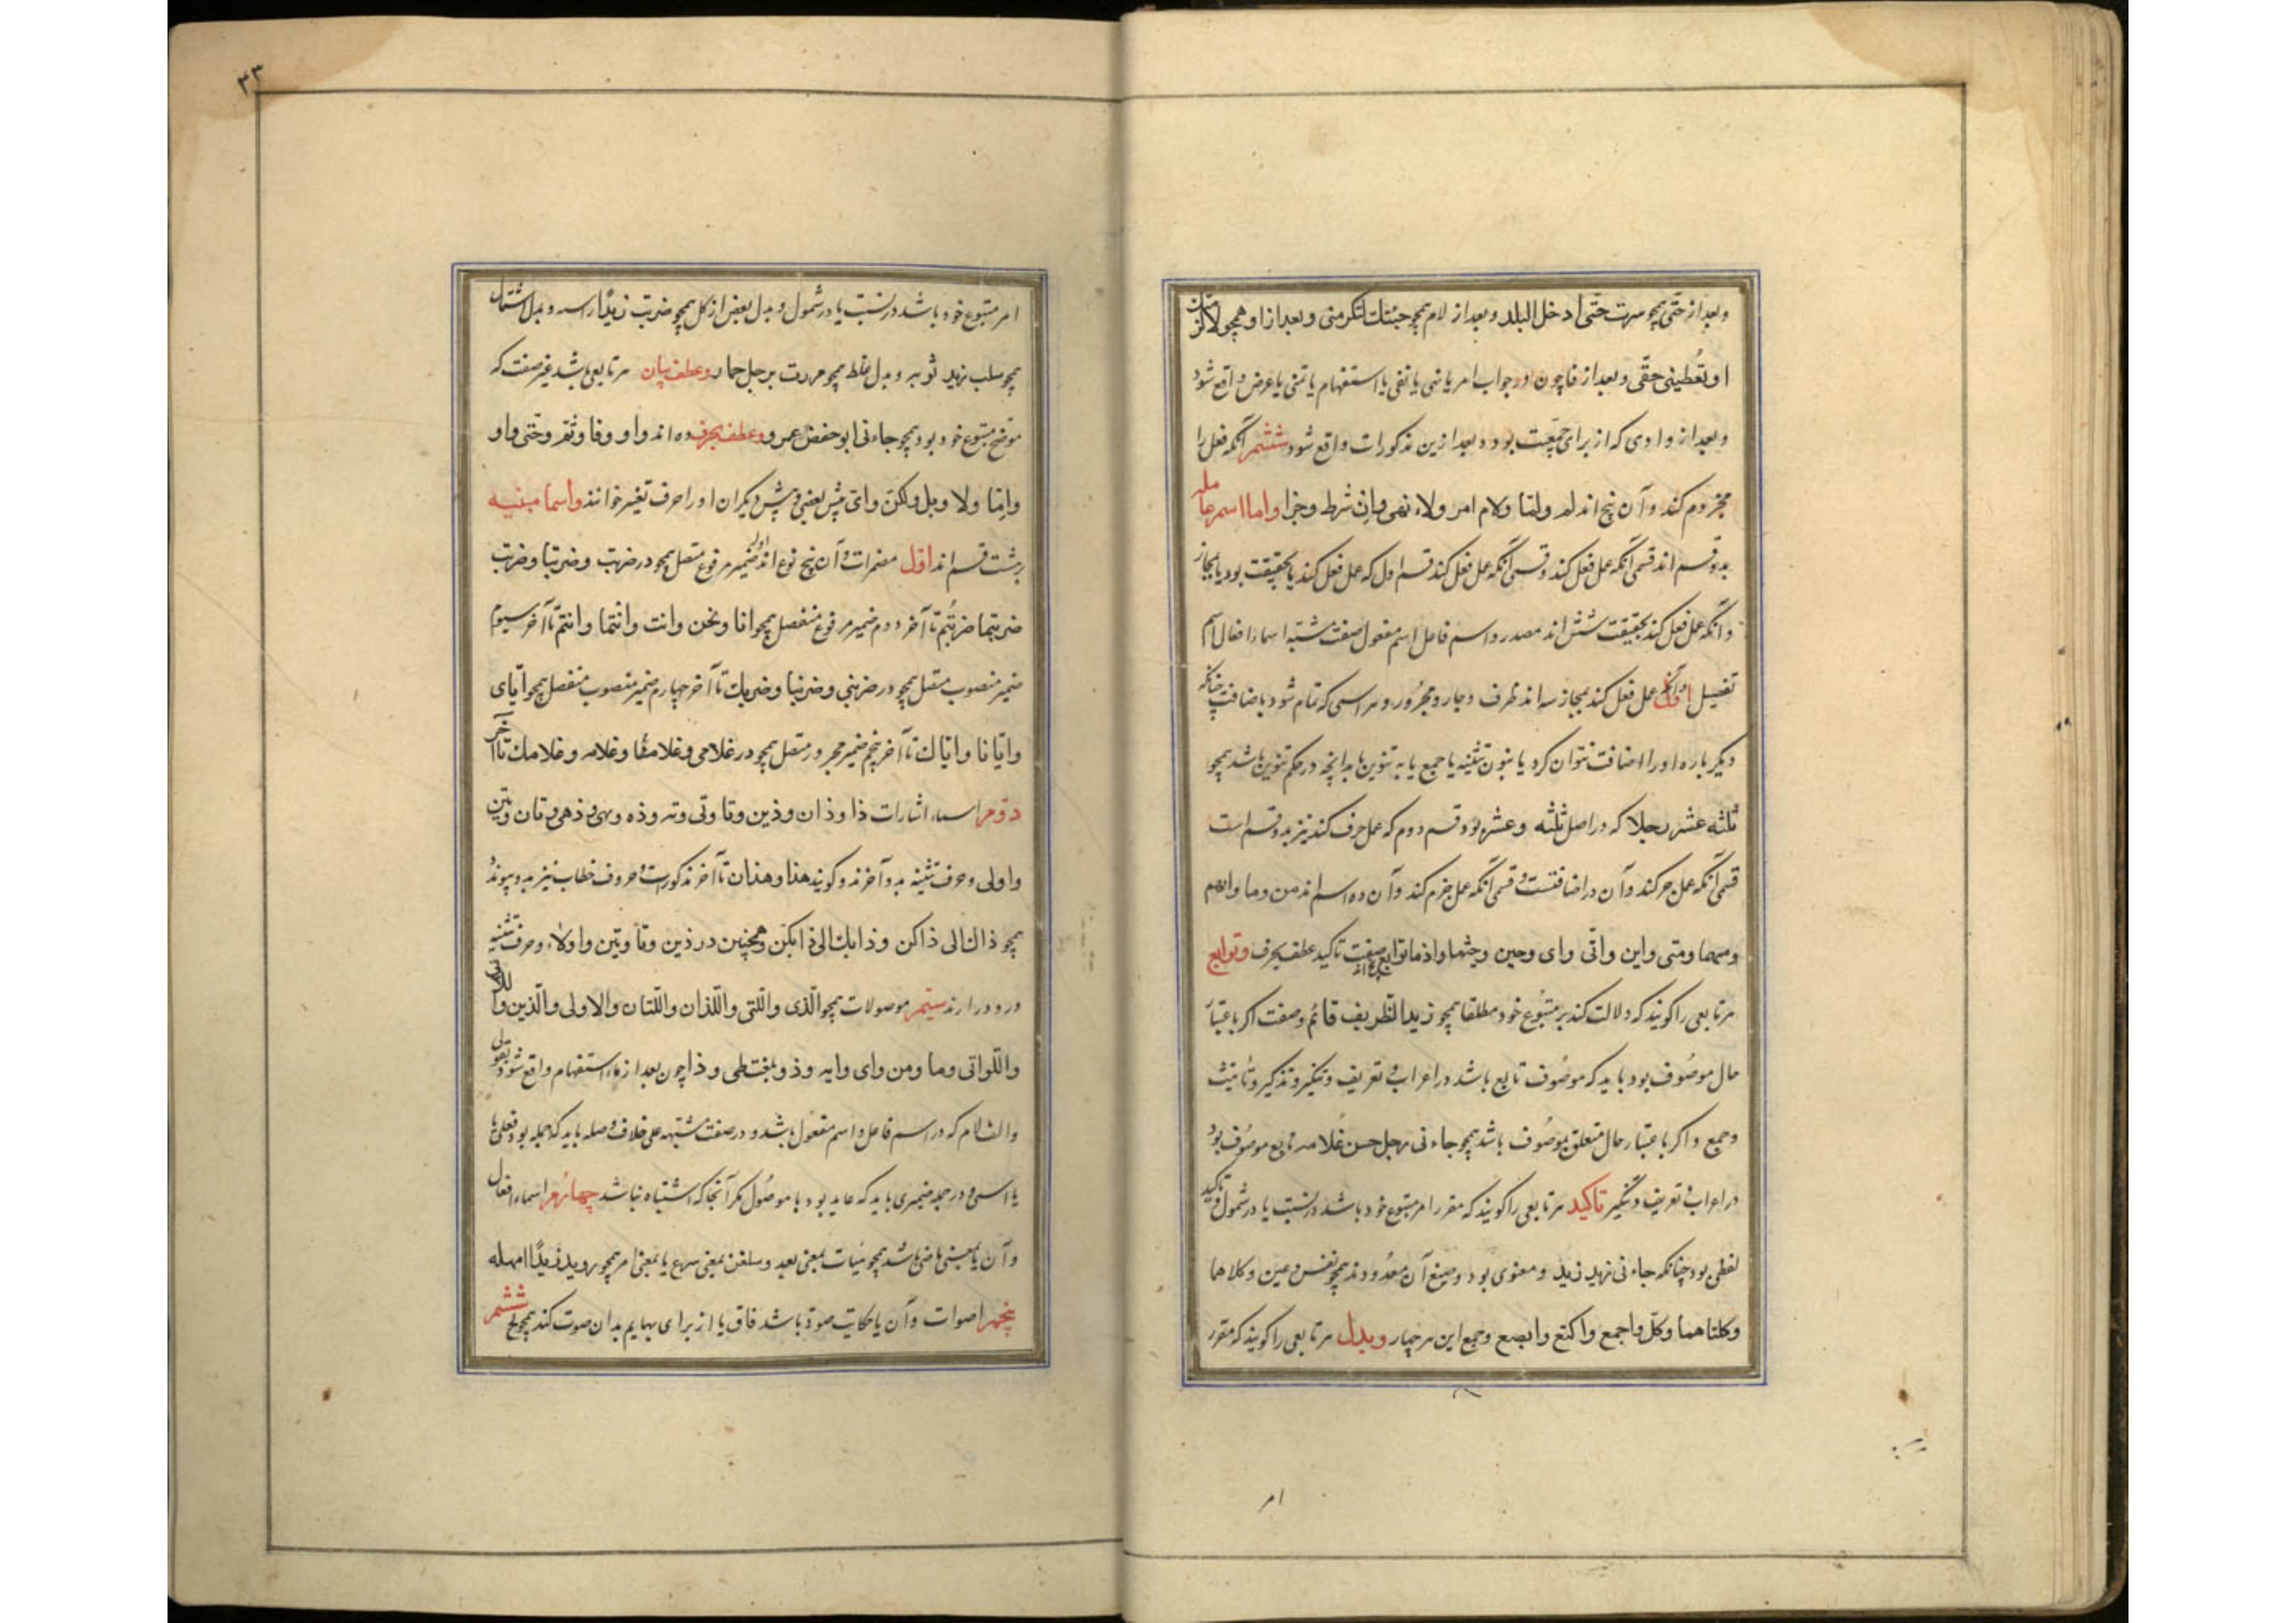 وبعد از حتی همچو سرت حتی ادخل البلد وبعد از لام همچو جئتك لتكرمنی وبعد از او همچو لالزمنك
او تعطینی حقی وبعد از فا چون در جواب امر یا نهی یا نفی یا استفهام یا تمنی یا عرض واقع شود
وبعد از واوی که از برای جمعیت بود وبعد ازین مذکورات واقع شود ششم آنکه فعل را
مجزوم کند وآن پنج اند لم ولما ولام امر ولاء نهی وان شرط وجزا واما اسم عامله
بدو قسم اند قسمی آنکه عمل فعل کند وقسمی آنکه عمل فعل کند قسم اول که عمل فعل کند یا بحقیقت بود یا بمجاز
وآنکه عمل فعل کند بحقیقت شش اند مصدر واسم فاعل اسم مفعول صفت مشبهه اسماء افعال اسم
تفضیل وآنکه عمل فعل کند بمجاز سه اند ظرف وجار ومجرور وهر اسمی که تمام شود باضافت چنانکه
دیگر باره اورا اضافت نتوان کرد یا بنون تثنیه یا جمع یا به تنوین یا بدانچه در حکم تنوین باشد همچو
ثلثه عشر رجلا که در اصل ثلثه وعشر بود وقسم دوم که عمل حرف کند نیز بدو قسم است
قسمی آنکه عمل جر کند وآن در اضافتست وقسمی آنکه عمل جزم کند وآن ده اسم اند من وما وایهم
ومهما ومتی واین وانی وای وحین وحیثما واذما توابع پنج اند صفت تاکید عطف بحرف وتوابع
هر تابعی را گویند که دلالت کند بر متبوع خود مطلقا همچو زید الظریف قائم وصفت اگر باعتبار
حال موصوف بود باید که موصوف تابع باشد در اعراب وتعریف وتنکیر وتذکیر وتأنیث
وجمع واگر باعتبار حال متعلق موصوف باشد همچو جاءنی رجل حسن غلامه تابع موصوف بود
در اعراب وتعریف وتنکیر تاکید هر تابعی را گویند که مقرر امر متبوع خود باشد در نسبت یا در شمول وتاکید
لفظی بود چنانکه جاءنی زید زید ومعنوی بود وصیغ آن معدودند همچو نفس وعین وکلاهما
وکلتاهما وکل واجمع واکتع وابصع وجمع این هر چهار وبدل هر تابعی را گویند که مقرر
امر
٣٣
امر متبوع خود باشد در نسبت یا در شمول وبدل بعض از کل همچو ضربت زیدا راسه وبدل اشتمال
همچو سلب زید ثوبه وبدل غلط همچو مررت برجل حمار وعطف بیان هر تابعی باشد غیر صفت که
موضح متبوع خود بود همچو جاءنی ابو حفض عمر وعطف بحرف ده اند واو وفا وثم وحتی واو
واما ولا وبل ولکن وای پیش بعضی وپیش دیگران اورا حرف تفسیر خوانند واسما مبنیه
بر هشت قسم اند اول مضمرات وآن پنج نوع اند اول ضمیر مرفوع متصل همچو در ضربت وضربنا وضربت
ضربتما ضربتم تا آخر دوم ضمیر مرفوع منفصل همچو انا ونحن وانت وانتما وانتم تا آخر سیوم
ضمیر منصوب متصل همچو در ضربنی وضربنا وضربك تا آخر چهارم ضمیر منصوب منفصل همچو ایای
وایانا وایاك تا آخر پنجم ضمیر مجرور متصل همچو در غلامی وغلامنا وغلامه وغلامك تا آخر
دوم اسماء اشارات ذا وذان وذین وتا وتی وته وذه وهی وذهی وتان وتین
واولی وحرف تنبیه بدو آخرند وگویند هذا وهذان تا آخر مذکورات وحروف خطاب نیز بدو پیوند
همچو ذاك الی ذاکن وذانك الی ذانکن وهمچنین در ذین وتا وتین واولاء وحرف تنبیه
درو در ارند سیم موصولات همچو الذی واللتی واللذان واللتان والاولی والذین واللاتی
واللواتی وما ومن وای وایه وذو بلغت طی وذا چون بعد از ماء استفهام واقع شود
والف لام که در اسم فاعل واسم مفعول باشد ودر صفت مشبهه علی خلاف وصله باید که جمله بود فعلی یا
یا اسمی ودر جمله ضمیری باید که عاید بود با موصول مگر آنجا که اشتباه نباشد چهارم اسماء افعال
وآن یا بمعنی ماضی باشد همچو هیهات بمعنی بعد وسلفن بمعنی سرع یا بمعنی امر همچو روید زیدا امهله
پنجم اصوات وآن یا حکایت صوت باشد غاق یا از برای بهایم بدان صوت کند همچو نخ ششم